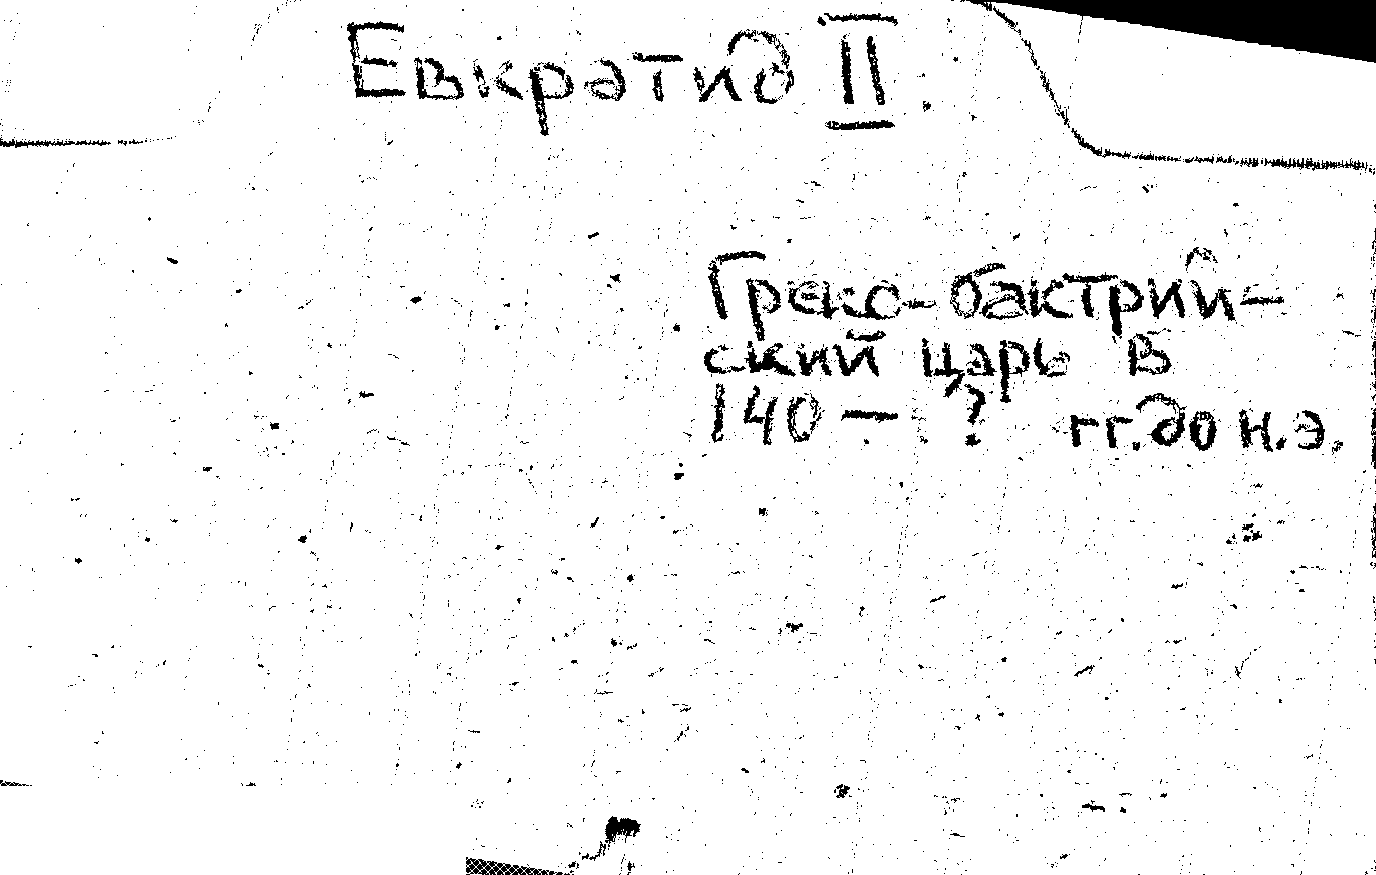 Евкратид II.
Греко-бактрий-
ский царь в
140 — ? гг. до н.э.